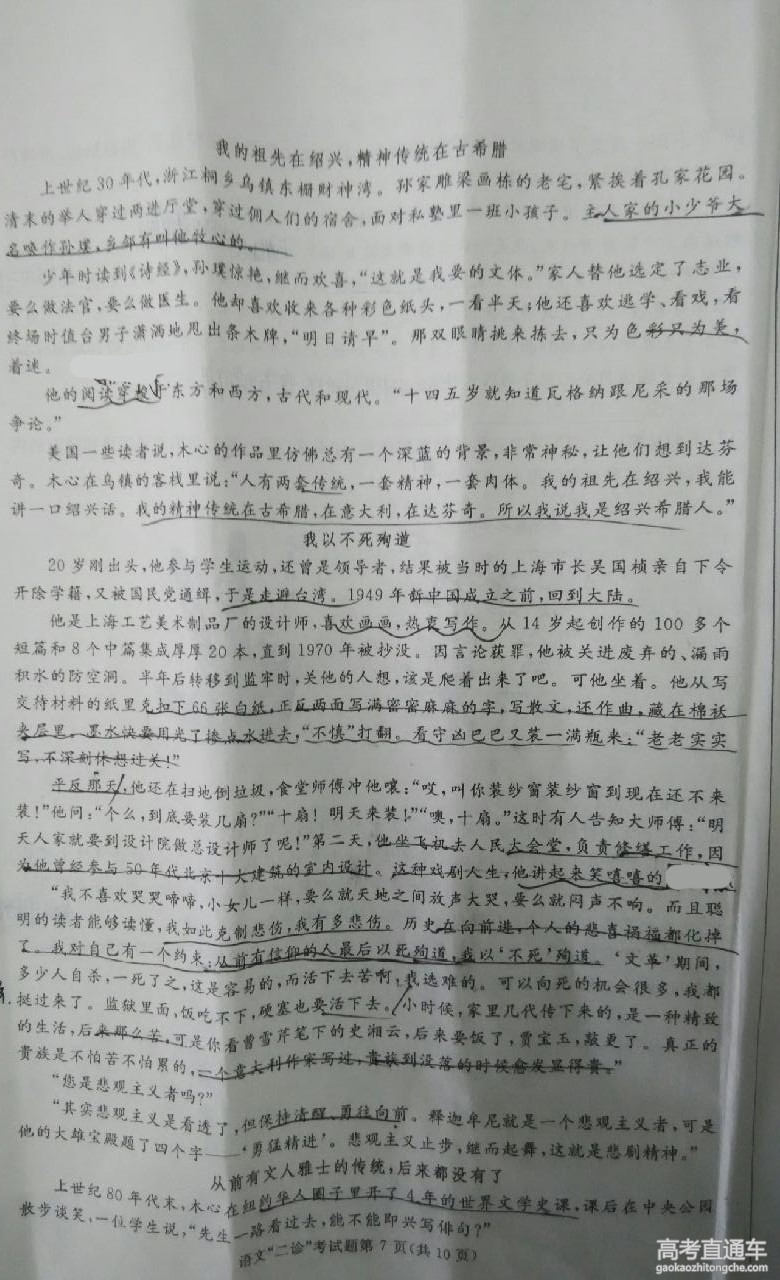 我的祖先在绍兴,精神传统在古希腊
上世纪30年代,浙江桐乡乌镇东栅财神湾。孙家雕梁画栋的老宅,紧挨着孔家花园。
清末的举人穿过两进厅堂,穿过佣人们的宿舍,面对私塾里一班小孩子。主人家的小少爷大
名唤作孙璞,乡邻有叫他牧心的。
少年时读到《诗经》,孙璞惊艳,继而欢喜,“这就是我要的文体。”家人替他选定了志业,
要么做法官,要么做医生。他却喜欢收来各种彩色纸头,一看半天;他还喜欢逃学、看戏,看
终场时值台男子潇洒地甩出条木牌,“明日请早”。那双眼睛挑来拣去,只为色彩只为美,
着迷。
他的阅读穿梭于东方和西方,古代和现代。“十四五岁就知道瓦格纳跟尼采的那场
争论。”
美国一些读者说,木心的作品里仿佛总有一个深蓝的背景,非常神秘,让他们想到达芬
奇。木心在乌镇的客栈里说:“人有两套传统,一套精神,一套肉体。我的祖先在绍兴,我能
讲一口绍兴话。我的精神传统在古希腊,在意大利,在达芬奇。所以我说我是绍兴希腊人。”
我以不死殉道
20岁刚出头,他参与学生运动,还曾是领导者,结果被当时的上海市长吴国桢亲自下令
开除学籍,又被国民党通缉,于是走避台湾。1949年新中国成立之前,回到大陆。
他是上海工艺美术制品厂的设计师,喜欢画画,热衷写作。从14岁起创作的100多个
短篇和8个中篇集成厚厚20本,直到1970年被抄没。因言论获罪,他被关进废弃的、漏雨
积水的防空洞。半年后转移到监牢时,关他的人想,该是爬着出来了吧。可他坐着。他从写
交待材料的纸里克扣下66张白纸,正反两面写满密密麻麻的字,写散文,还作曲,藏在棉袄
夹层里。墨水快要用光了掺点水进去,“不慎”打翻。看守凶巴巴又装一满瓶来:“老老实实
写,不深刻休想过关!”
平反那天,他还在扫地倒垃圾,食堂师傅冲他嚷:“哎,叫你装纱窗装纱窗到现在还不来
装!”他问:“个么,到底要装几扇?”“十扇!明天来装!”“噢,十扇。”这时有人告知大师傅:“明
天人家就要到设计院做总设计师了呢!”第二天,他坐飞机去人民大会堂,负责修缮工作,因
为他曾经参与50年代北京十大建筑的室内设计。这种戏剧人生,他讲起来笑嘻嘻的
“我不喜欢哭哭啼啼,小女儿一样,要么就天地之间放声大哭,要么就闷声不响。而且聪
明的读者能够读懂,我如此克制悲伤,我有多悲伤。历史在向前进,个人的悲喜祸福都化掉
了。我对自己有一个约束:从前有信仰的人最后以死殉道,我以‘不死’殉道。‘文革’期间,
多少人自杀,一死了之,这是容易的,而活下去苦啊,我选难的。可以向死的机会很多,我都
挺过来了。监狱里面,饭吃不下,硬塞也要活下去。小时候,家里几代传下来的,是一种精致
的生活,后来那么苦,可是你看曹雪芹笔下的史湘云,后来要饭了,贾宝玉,敲更了。真正的
贵族是不怕苦不怕累的,一个意大利作家写过,贵族到没落的时候愈发显得贵。”
“您是悲观主义者吗?”
“其实悲观主义是看透了,但保持清醒、勇往向前。释迦牟尼就是一个悲观主义者,可是
他的大雄宝殿题了四个字——‘勇猛精进’。悲观主义止步,继而起舞,这就是悲剧精神。”
从前有文人雅士的传统,后来都没有了
上世纪80年代末,木心在纽约华人圈子里开了4年的世界文学史课,课后在中央公园
散步谈笑,一位学生说,“先生一路看过去,能不能即兴写俳句?”
语文“二诊”考试题第7页(共10页)
高考直通车
gaokaozhitongche.com